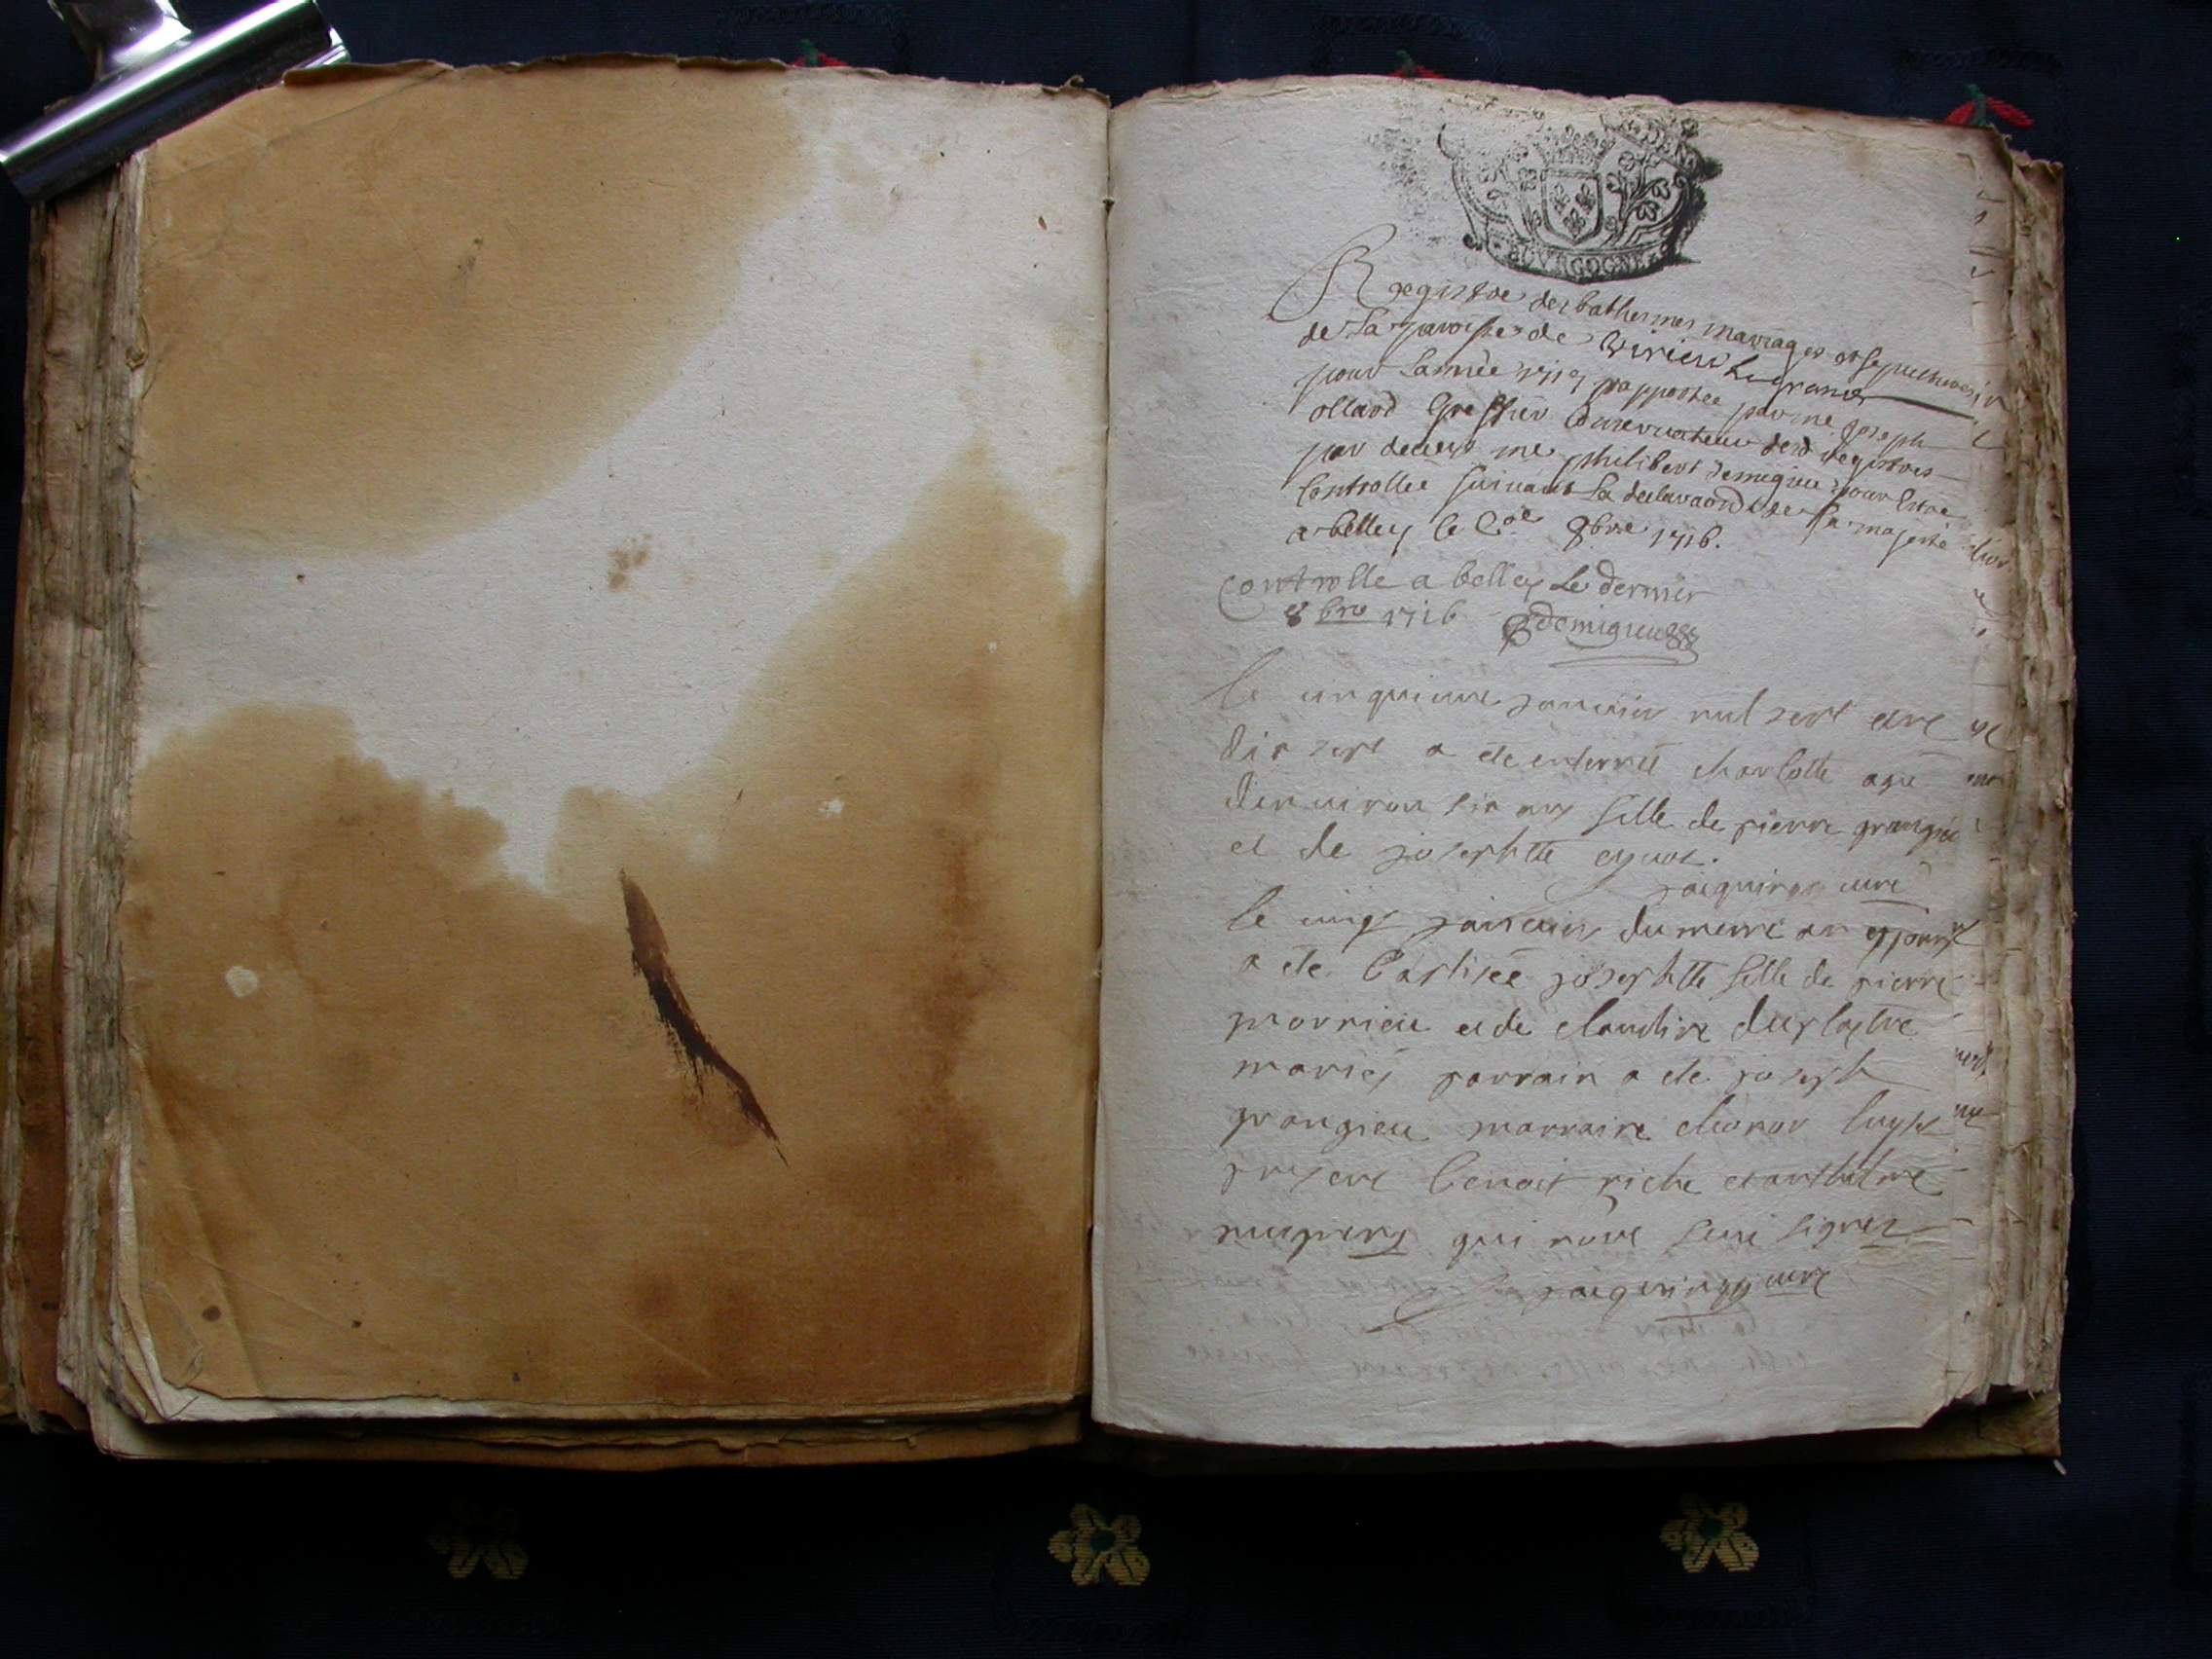 BOURGOGNE
Registre des bathesmes mariages et sepultures
de la paroisse de Virieu le grand
pour lannée 1717 rapportée par me joseph
ollard greffier Conservateur desd registres
par devers me philibert demigieu pour estre
Controllée suivant la declaraon de sa majesté
a belley le 8bre 1716.
Controllé a belley Le dernier
8bre 1716 demigieu
le cinquieme janvier mil sept cent
dix sept a été enterrée charlotte agée
denviron six ans fille de pierre grangieu
et de josephtte
jacquin curé
le janvier du meme an
a été batisée josephtte fille de pierre
et de claudine duplastre
mariés parrain a été joseph
grangieu marraine eleonor
present benoit riche et anthelme
qui nont seui signer
jacquin curé